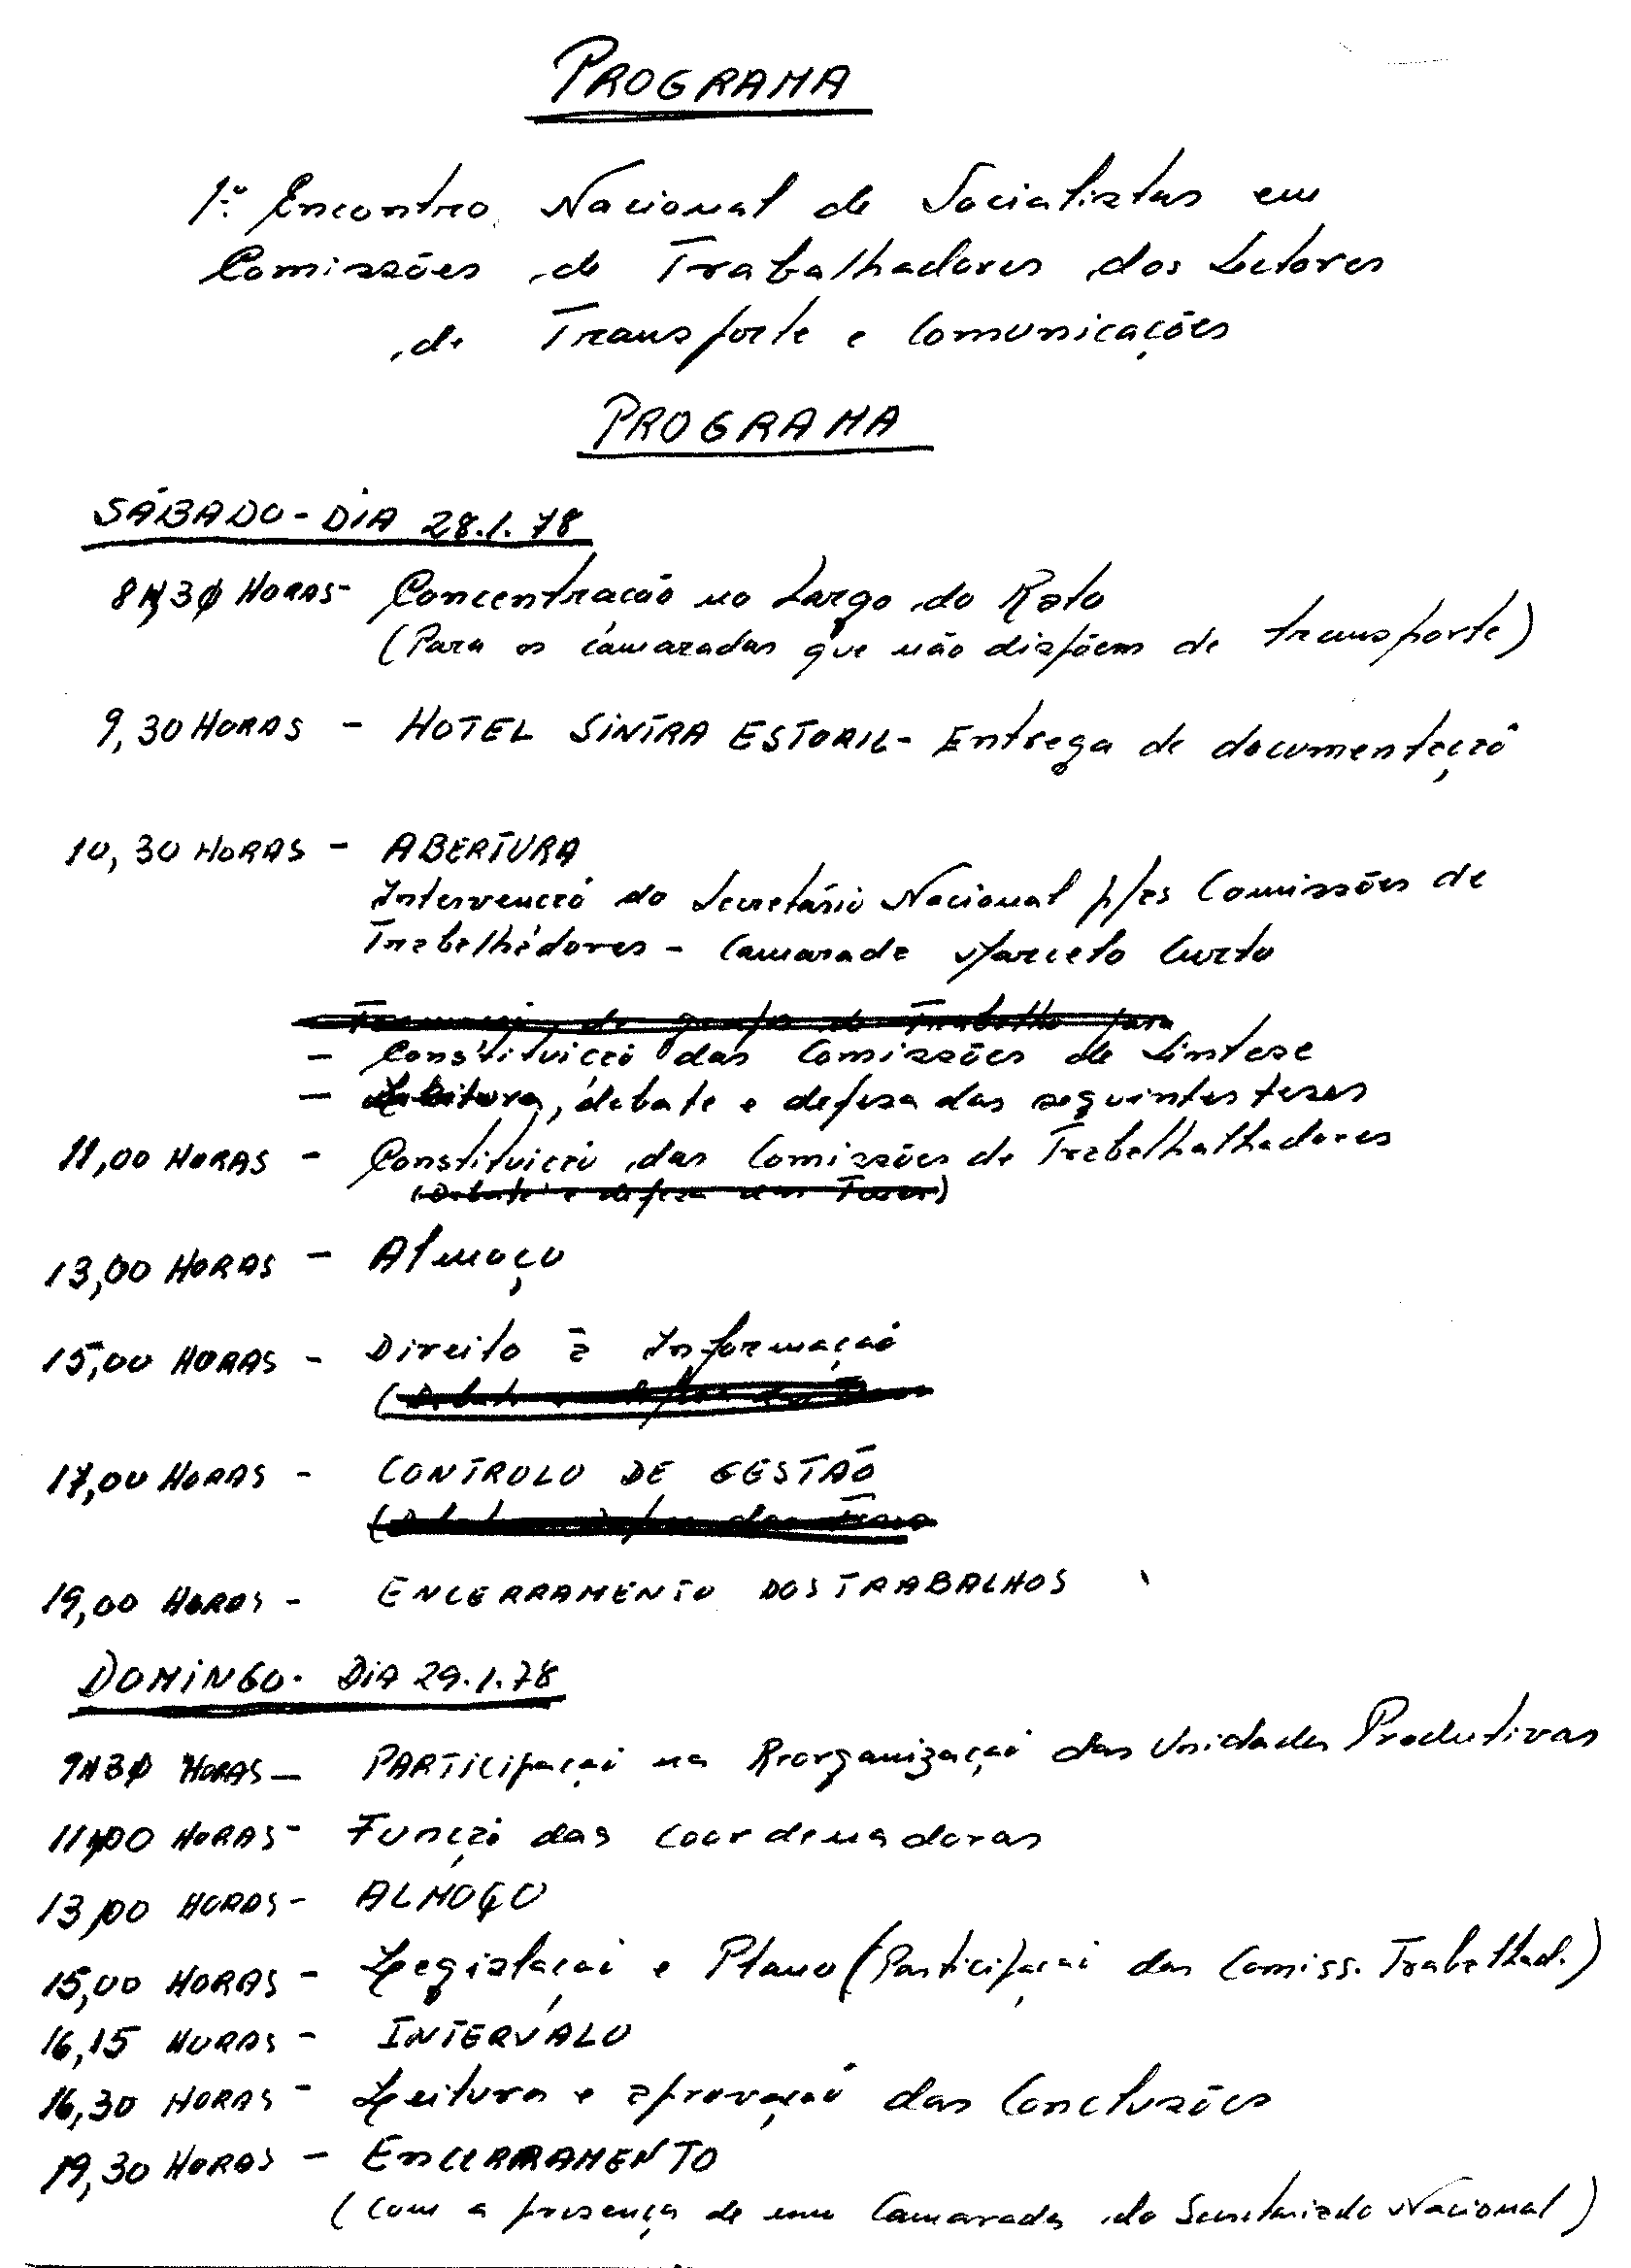 PROGRAMA
1º. Encontro Nacional de Socialistas em
Comissões de Trabalhadores dos Sectores
de Transporte e Comunicações
PROGRAMA
SÁBADO - DIA 28.1.78
8H30 HORAS - Concentração no Largo do Rato
(Para os camaradas que não dispõem de transporte)
9,30 HORAS - HOTEL SINTRA ESTORIL - Entrega de documentação
10,30 HORAS - ABERTURA
Intervenção do Secretário Nacional p/as Comissões de
Trabalhadores - Camarada Marcelo Curto
Formação de grupos de Trabalho para
- Constituição das Comissões de Síntese
- Leitura, debate e defesa das seguintes teses
11,00 HORAS - Constituição das Comissões de Trabalhalhadores
(Debate e defesa das Teses)
13,00 HORAS - Almoço
15,00 HORAS - Direito à Informação
(Debate e defesa das Teses
17,00 HORAS - CONTROLO DE GESTÃO
(Debate e Defesa das Teses
19,00 HORAS - ENCERRAMENTO DOS TRABALHOS
DOMINGO - DIA 29.1.78
9H30 HORAS - PARTICIPAÇÃO na Reorganização das Unidades Produtivas
11,00 HORAS - Função das Coordenadoras
13,00 HORAS - ALMOÇO
15,00 HORAS - Legislação e Plano (Participação das Comiss. Trabalhad.)
16,15 HORAS - INTERVALO
16,30 HORAS - Leitura e aprovação das Conclusões
19,30 HORAS - ENCERRAMENTO
(Com a presença de um Camarada do Secretariado Nacional)